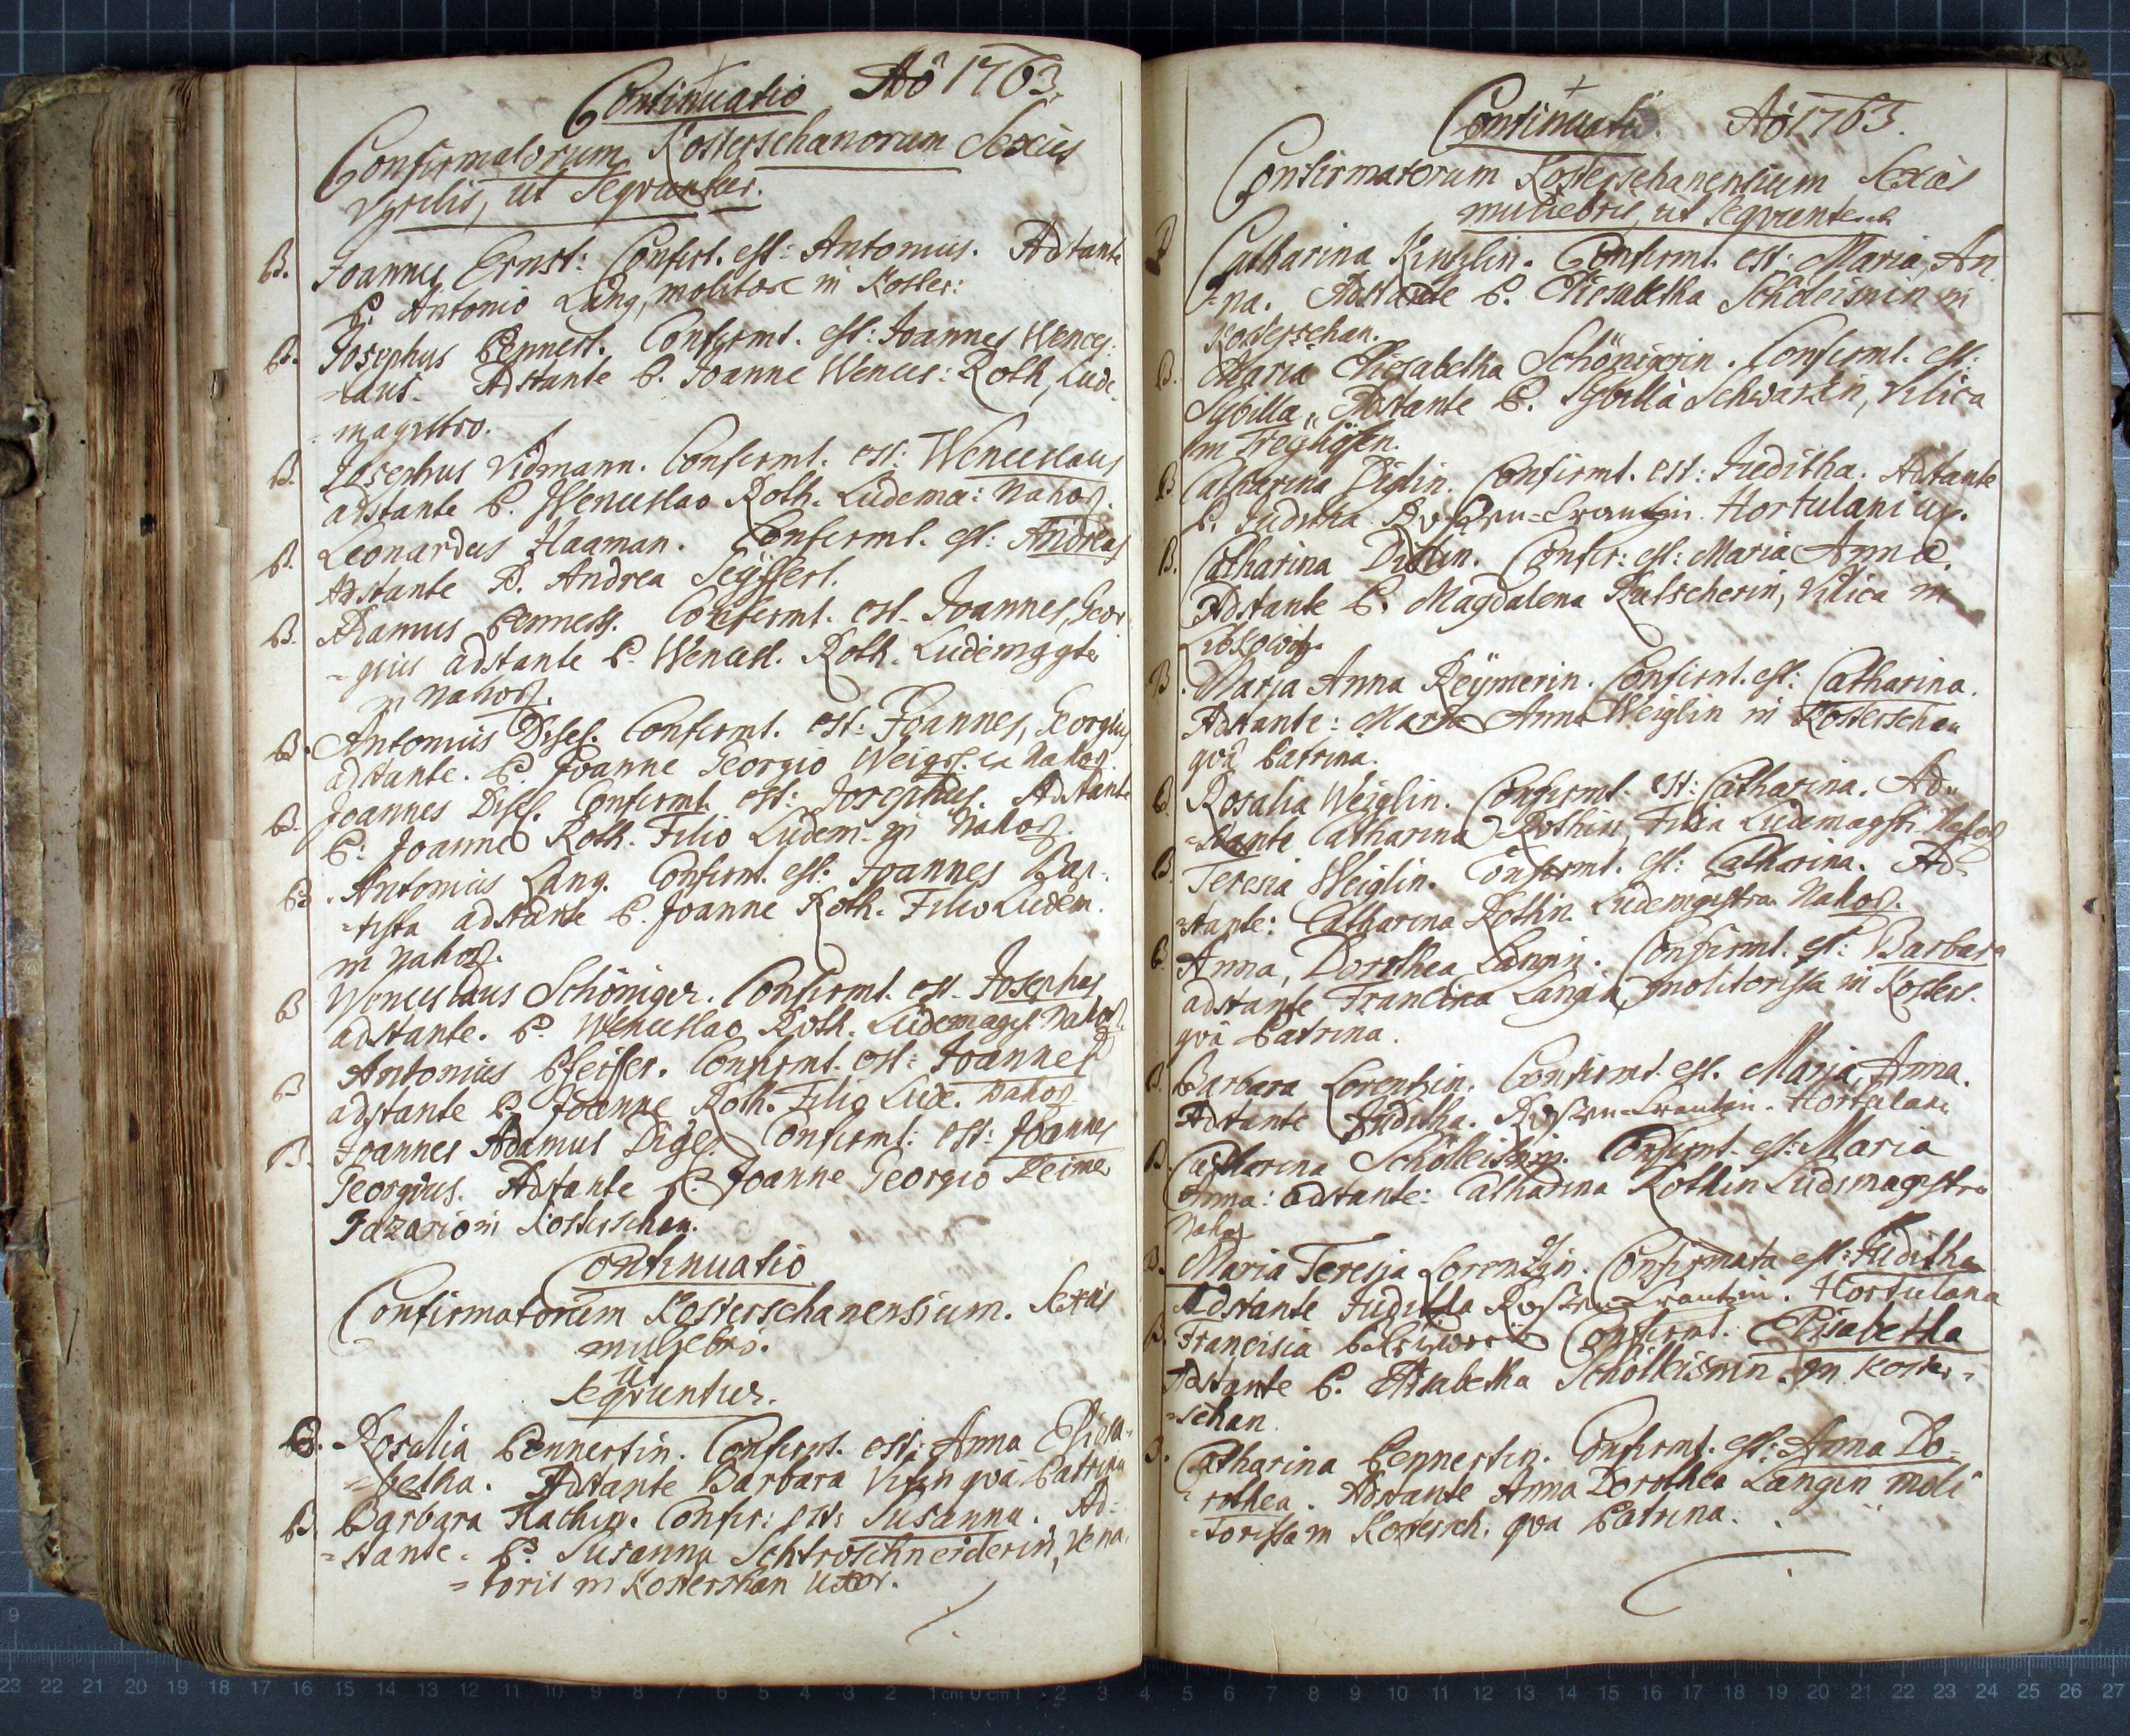 Continuatio Aô 1763.
Confirmatorum Kosterschanorum Sexus
Vyrilis, ut Sequuntur.
B. Joannes Ernst: Confirt. est: Antonius. Adstante
P. Antonio Lang, molitore in Koster:
B. Josephus Pennert. Confirmt. est: Joannes Wences,
=laus. Adstante P. Joanne Wences: Roth, Lude,
magistro.
B. Josephus Vidmann. Confirmt. est: Wenceslaus
adstante P. Wenceslao Roth. Ludema: Nahos.
B. Leonardus Haaman. Confirmt. est: Andreas
Adstante P. Andrea Seÿffert.
B. Adamus Pennert. Confirmt. est. Joannes, Geor
=gius adstante P. Wencesl. Roth. Ludimagtr
in Nahos.
B. Antonius Confirmt. est: Joannes, Georgius
adstante. P. Joanne Georgio Weigl. Nahos.
B. Joannes Confirmt. est: Josephus. Adstante
P: Joanne Roth. Filio Ludem. in Nahos.
B. Antonius Lang. Confirmt. est. Joannes Bap-
=tista adstante P. Joanne Roth. Filio Ludem.
in Nahos.
B Wenceslaus Schöniger. Confirmt. est. Josephus
adstante. P. Wenceslao Roth. Ludemagst. Nahos.
B Antonius Pfeiffer. Confirmt. est: Joannes
adstante P. Joanne Roth. Filio Lude. Nahos
B. Joannes Adamus Confirmt: est: Joannes
Georgius. Adstante P. Joanne Georgio Reimer
in Kosterschan.
Continuatio
Confirmatorum Kosterschanensium. Sexus
muliebris.
ut
Sequuntur.
B. Rosalia Pennertin. Confirmt. est: Anna Elisa-
=betha. Adstante Barbara quà Patrina
B. Barbara Confir: est: Susanna. Ad=
=stante. P. Susanna Schtroschneiderin, Vena
=toris in Kosterschan Uxor.
Continuatio. Aô 1763.
Confirmatorum Kosterschanensium Sexus
muliebris, ut Sequuntur
Catharina Confirmt. est: Maria, An
=na. Adstante P. Elisabetha Schöleisnin in
Kosterschan.
B. Maria Elisabetha Schönigerin. Confirmt. est:
Sybilla, Adstante P. Sybilla Schwarzin, Vilica
in
B Catharina Confirmt. est: Juditha. Adstante
P. Juditha Hortulani
B. Catharina Confir: est: Maria Anna.
Adstante P. Magdalena Kutscherin, Vilica in
B. Maria Anna Reÿmerin. Confirmt. est: Catharina.
Adstante: Maria Anna Weiglin in Kosterschan
quà Patrina.
B Rosalia Weiglin. Confirmt. est: Catharina. Ad=
=stante Catharina Rothin, Filia Ludemagstri Nahos
B. Teresia Weiglin. Confirmt. est: Catharina. Ad=
=stante: Catharina Rothin. Ludemgistra. Nahos.
B Anna, Dorothea Langin. Confirmt. est: Barbara
adstante Francisca Langin, molitorissa in Koster.
quà Patrina.
B. Barbara Lorentzin. Confirmt. est. Maria, Anna.
Adstante Juditha. Hortulana
B. Catharina Schölleisnin. Confirmt. est: Maria
Anna: adstante: Catharina Rothin Ludimagistra
Nahos
B. Maria Teresia Lorentzin. Confirmata est: Juditha
Adstante Juditha Hortulana
B. Francisia Confirmt. Elisabetha
Adstante P. Elisabetha Schölleisnin in Koster=
=schan.
B. Catharina Pennertin. Confirmt. est: Anna Do=
=rothea. Adstante Anna Dorothea Langin moli
=torissa in Kostersch. qua Patrina.